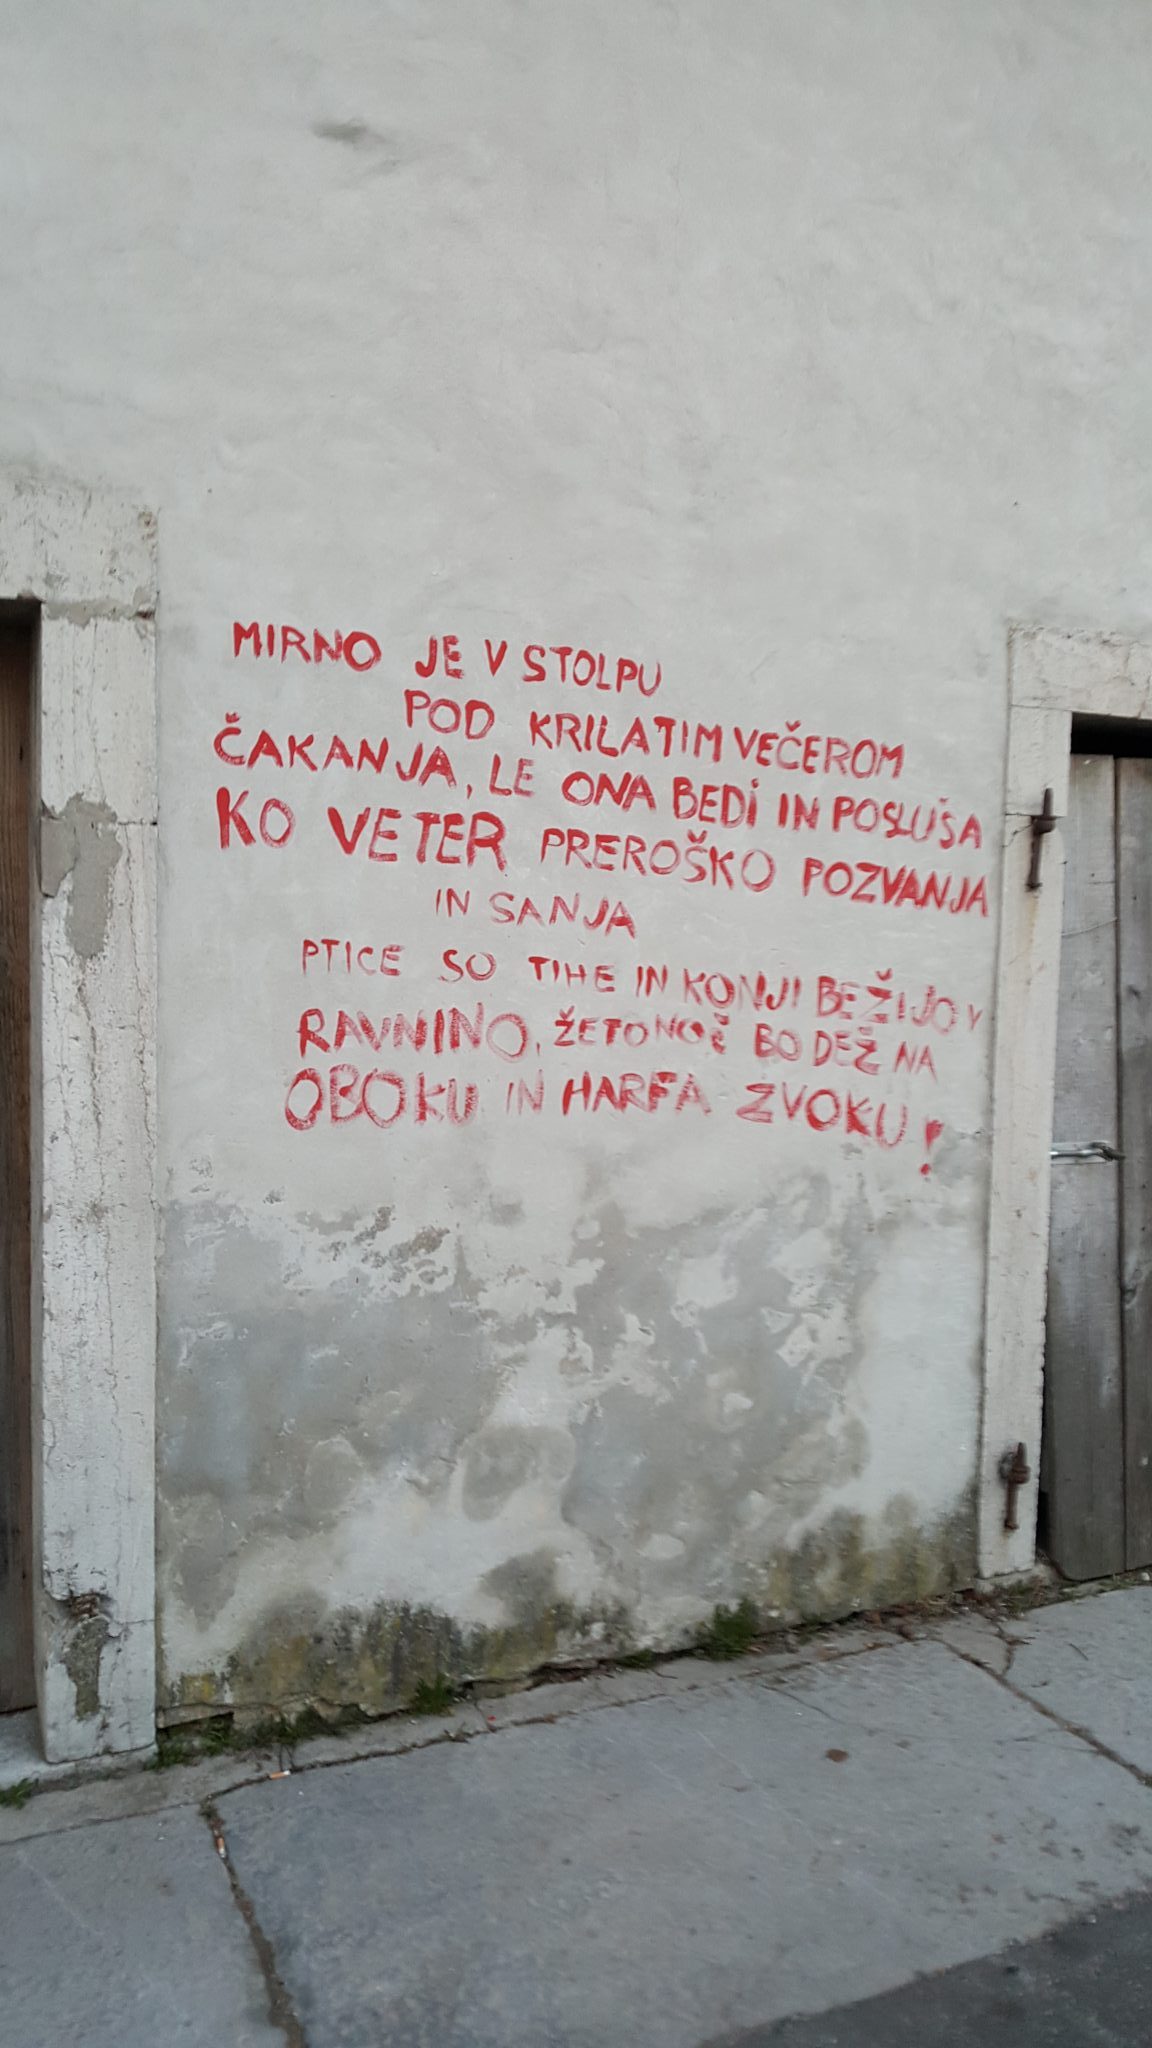 MIRNO JE V STOLPU
POD KRILATIM VEČEROM
ČAKANJA, LE ONA BEDi IN POSLUŠA
KO VETER PREROŠKO POZVANJA
IN SANJA
PTICE SO TIHE IN KONJI BEŽIJO V
RAVNINO, ŽETONOČ BO DEŽ NA
OBOKU IN HARFA ZVOKU!